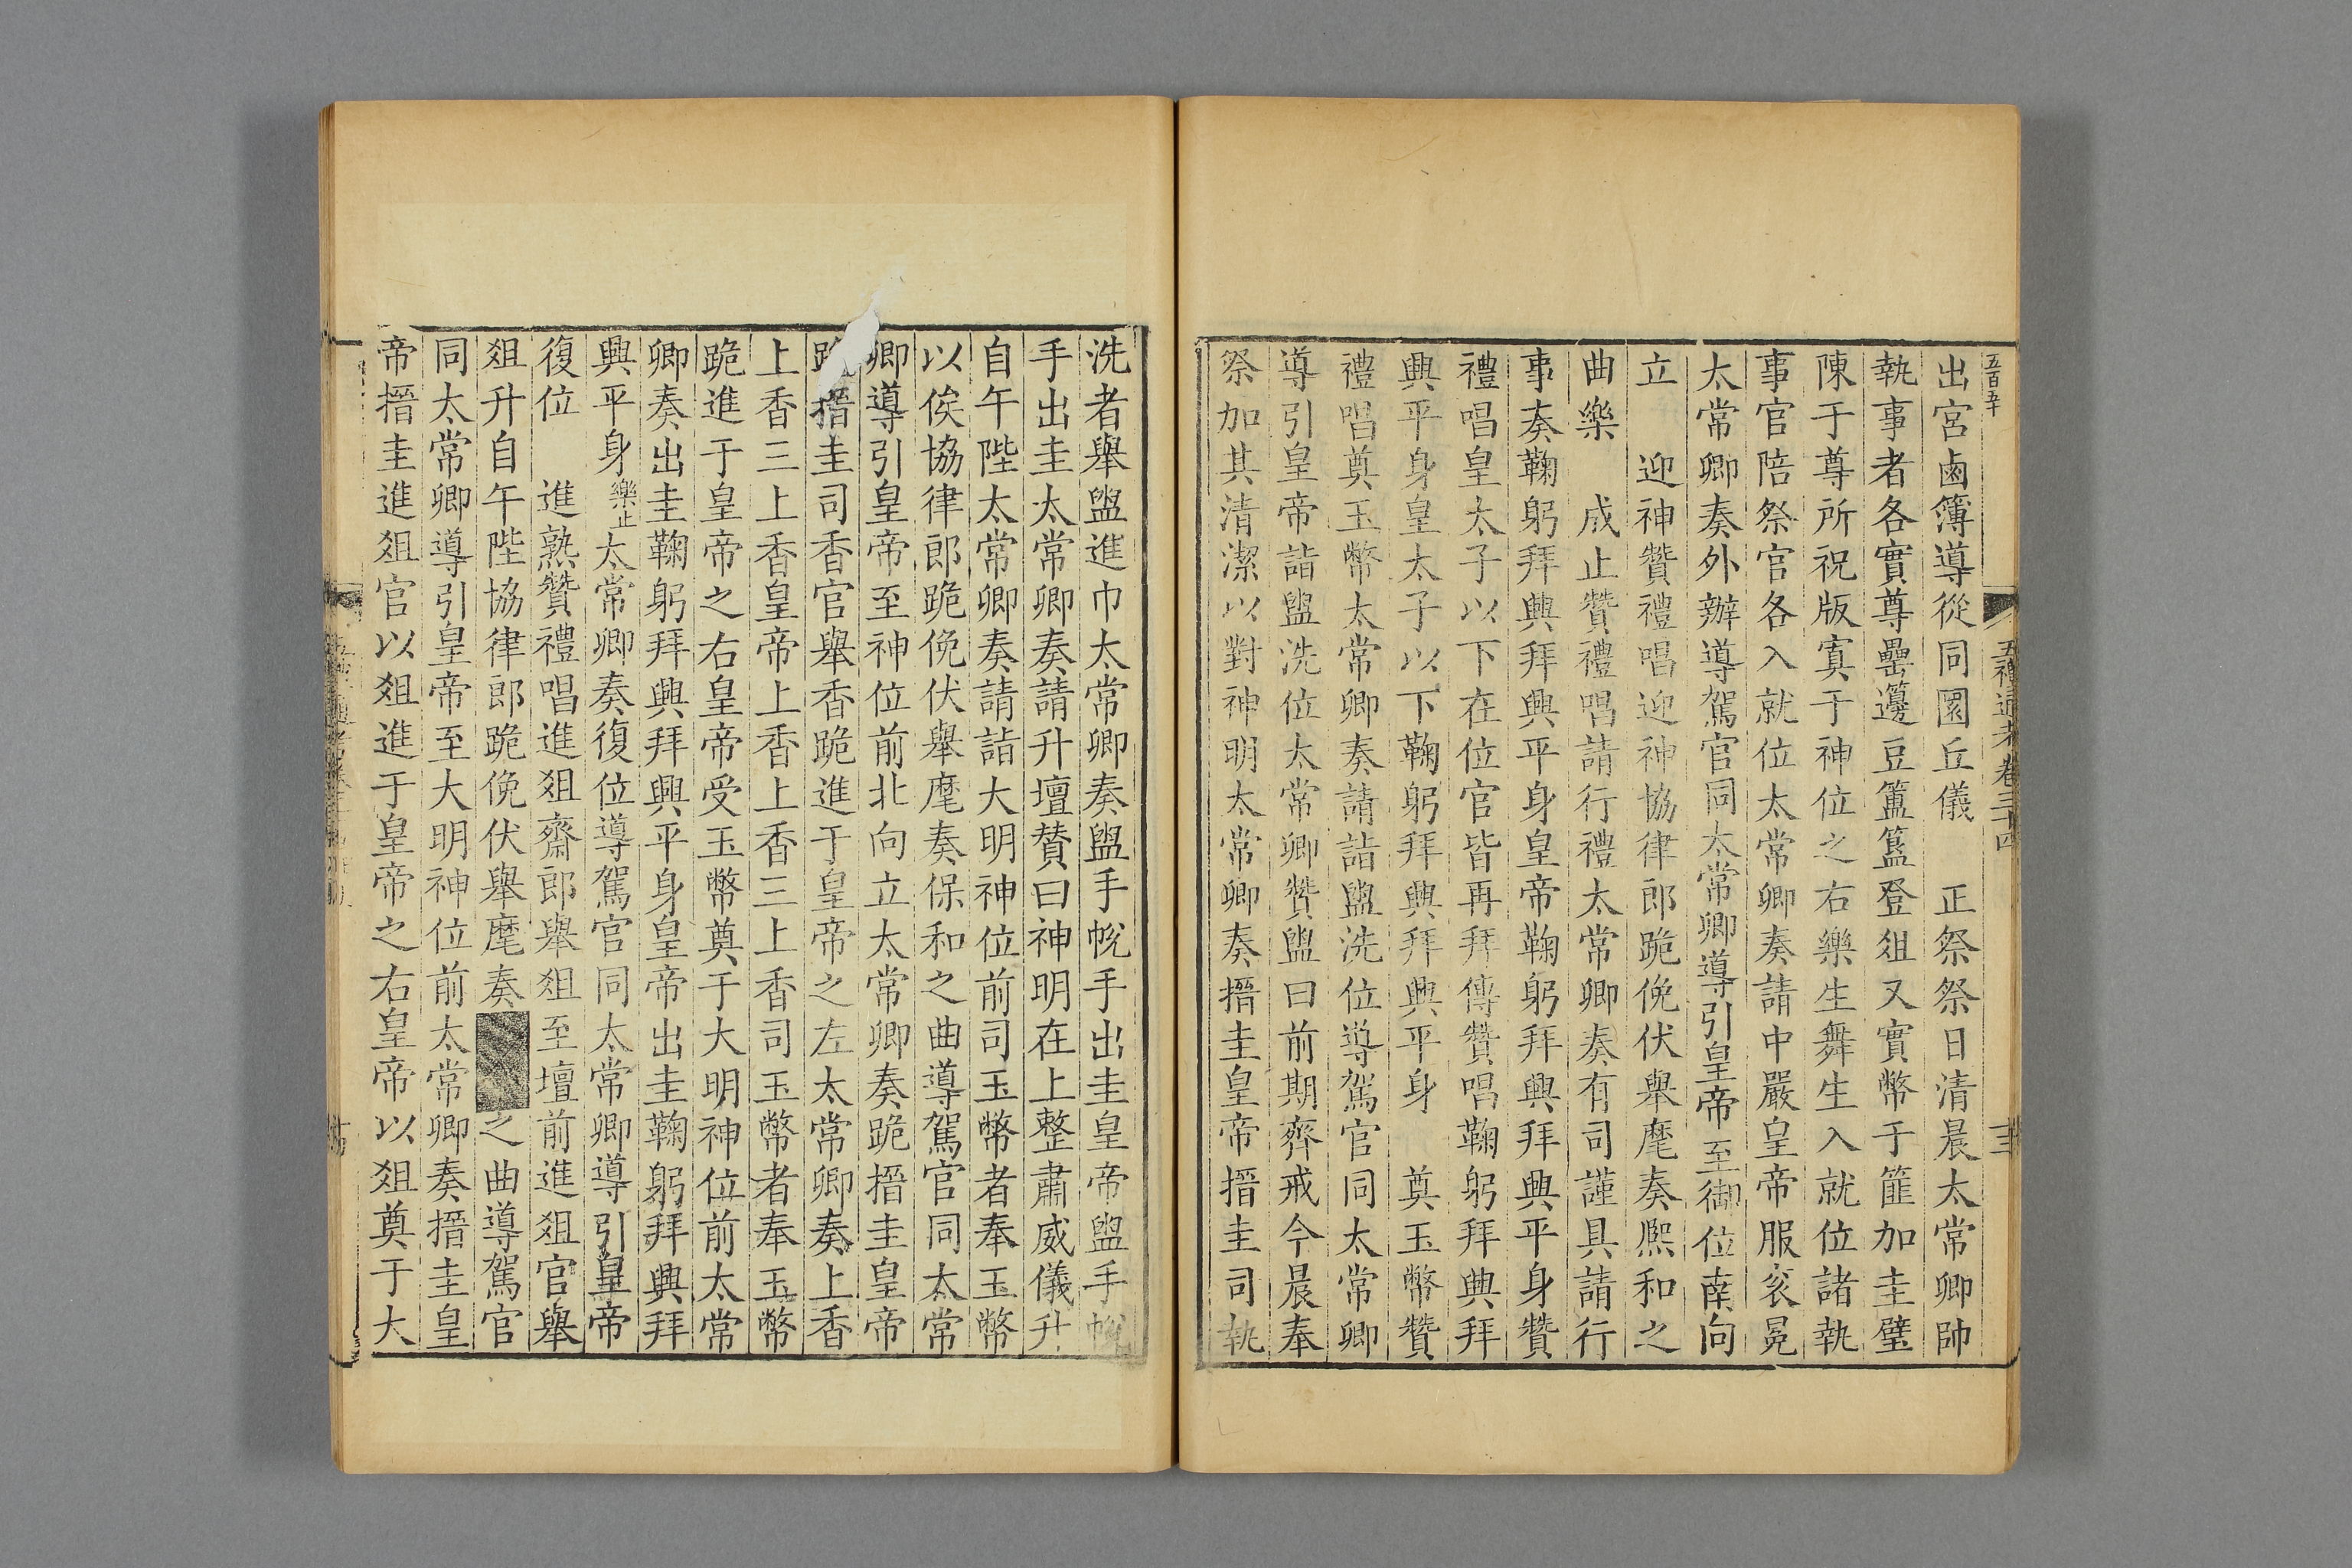 五百五十
五禮通考卷三十四
出宮鹵簿導從同圜丘儀　正祭祭日清晨太常卿帥
執事者各實尊罍籩豆簠簋登俎又實幣于篚加圭璧
陳于尊所祝版寘于神位之右樂生舞生入就位諸執
事官陪祭官各入就位太常卿奏請中嚴皇帝服衮冕
太常卿奏外辦導駕官同太常卿導引皇帝至御位南向
立　迎神贊禮唱迎神協律郎跪俛伏舉麾奏熈和之
曲樂　成止贊禮唱請行禮太常卿奏有司謹具請行
事奏鞠躬拜興拜興平身皇帝鞠躬拜興拜興平身贊
禮唱皇太子以下在位官皆再拜傳贊唱鞠躬拜興拜
興平身皇太子以下鞠躬拜興拜興平身　奠玉幣贊
禮唱奠玉幣太常卿奏請詣盥洗位導駕官同太常卿
導引皇帝詣盥洗位太常卿贊盥曰前期齊戒今晨奉
祭加其清潔以對神明太常卿奏搢圭皇帝搢圭司執
洗者舉盥進巾太常卿奏盥手帨手出圭皇帝盥手帨
手出圭太常卿奏請升壇贊曰神明在上整肅威儀升
自午陛太常卿奏請詣大明神位前司玉幣者奉玉幣
以俟協律郎跪俛伏舉麾奏保和之曲導駕官同太常
卿導引皇帝至神位前北向立太常卿奏跪搢圭皇帝
跪搢圭司香官舉香跪進于皇帝之左太常卿奏上香
上香三上香皇帝上香上香三上香司玉幣者奉玉幣
跪進于皇帝之右皇帝受玉幣奠于大明神位前太常
卿奏出圭鞠躬拜興拜興平身皇帝出圭鞠躬拜興拜
興平身樂止太常卿奏復位導駕官同太常卿導引皇帝
復位　進熟贊禮唱進俎齋郎舉俎至壇前進俎官舉
俎升自午陛協律郎跪俛伏舉麾奏之曲導駕官
同太常卿導引皇帝至大明神位前太常卿奏搢圭皇
帝搢圭進俎官以俎進于皇帝之右皇帝以俎奠于大